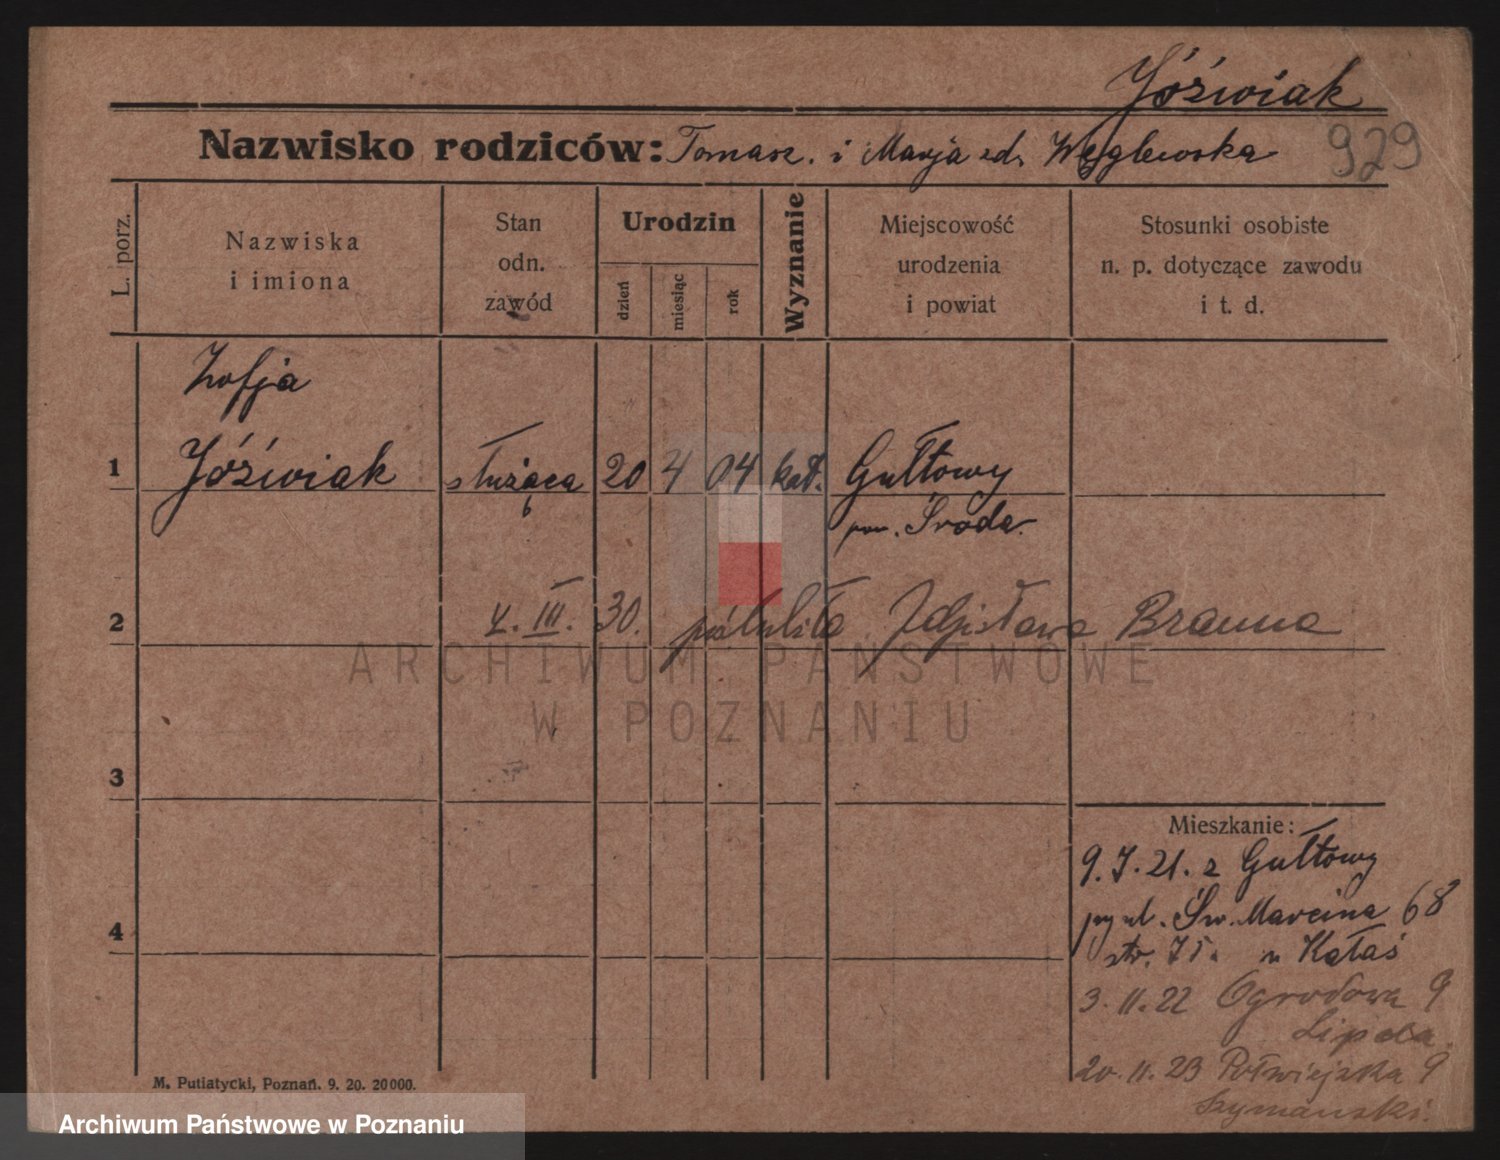 Jóźwiak
Nazwisko rodziców: Tomasz. i Marja zd. Węglewska
929
L. porz.
Nazwiska
i imiona
Stan
odn.
zawód
Urodzin
dzień
miesiąc
rok
Wyznanie
Miejscowość
urodzenia
i powiat
Stosunki osobiste
n. p. dotyczące zawodu
i t. d.
Zofja
1 Jóźwiak służąca 20 4 04 kat. Gułtowy
pow. Środa.
2 4. III. 30. poślubiła Zdzisława Brauna
ARCHIWUM PAŃSTWOWE
W POZNANIU
3
Mieszkanie:
9. I. 21. z Gułtowy
przy ul. Św. Marcina 68
4
Kałaś
3. 11. 22 Ogrodowa 9
20. 11. 23 Półwiejska 9
Szymański.
M. Putiatycki, Poznań. 9. 20. 20000.
Archiwum Państwowe w Poznaniu